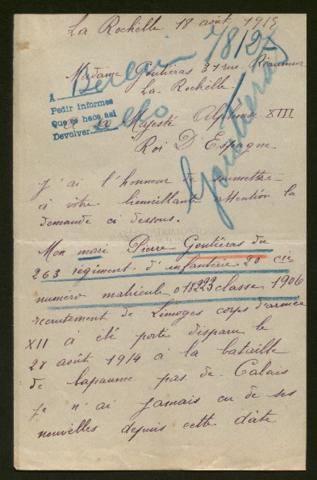 La Rochelle 18 août 1915
Berlin 78/27
Madame Goutiéras 31 rue Réaumur
La Rochelle
A
Pedir informes
Que se hace así
Devolver
a Sa Majesté Alphonse XIII
Roi D'Espagne
Goutieras
J'ai l'honneur de soumettre
à votre bienveillante attention la
demande ci dessous.
Mon mari Pierre Goutiéras du
263 régiment d'infanterie 20 cie
numero matricule 018229 classe 1906
recrutement de Limoges corps d'armée
XII a été porté disparu le
28 août 1914 à la bataille
de Bapaume pas de Calais
Je n'ai jamais eu de ses
nouvelles depuis cette date